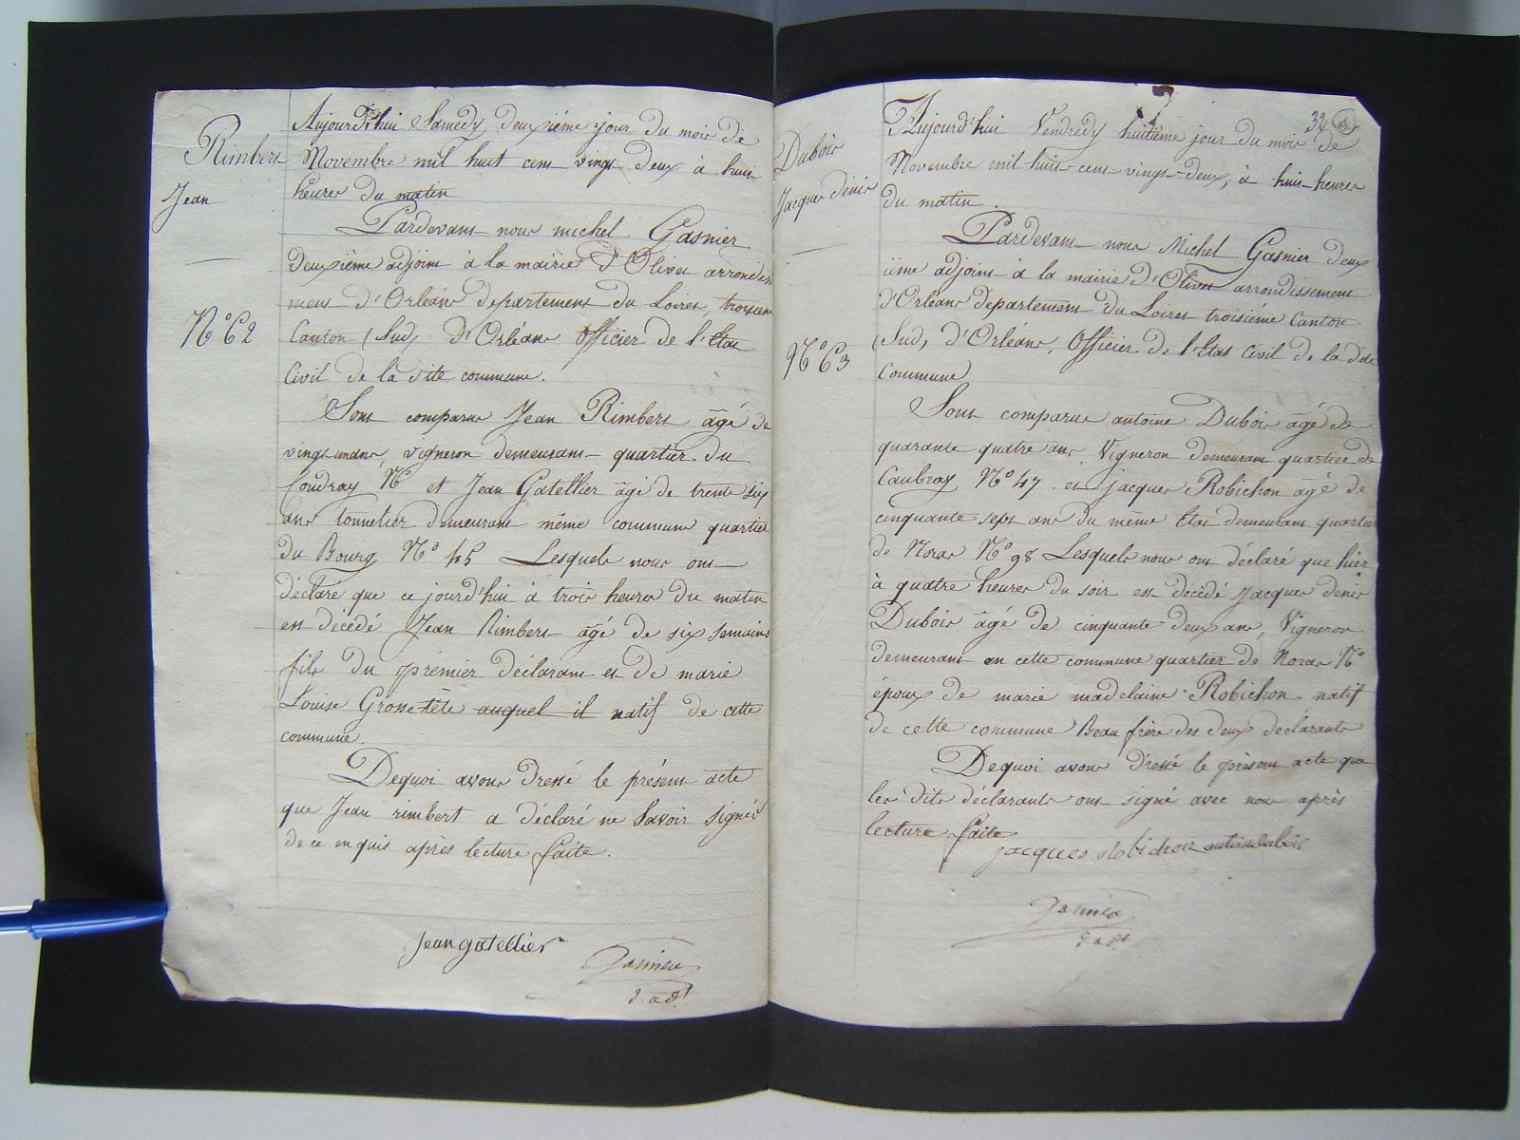 Rimbert
Jean
N° 62
Aujourd'hui Samedy deuxième jour du mois de
Novembre mil huit cent vingt deux à huit
heures du matin
Pardevant nous michel Gasnier
deuxième adjoint à la mairie d'Olivet arrondisse
ment d'Orléans departement du Loiret, troisieme
Canton (Sud) D'Orléans officier de l'Etat
Civil de la dite commune.
Sont comparus Jean Rimbert âgé de
vingt un ans, vigneron demeurant quartier du
Coudray N° et Jean Gatellier âgé de trente six
ans tonnelier demeurant même commune quartier
du Bourg N° 45 Lesquels nous ont
déclaré que ce jourd'hui à trois heures du matin
est décédé Jean Rimbert âgé de six semaines
fils du premier déclarant et de marie
Louise Grossetête auquel il natif de cette
commune.
Dequoi avons dressé le présent acte
que Jean rimbert a déclaré ne savoir signer
de ce enquis après lecture faite.
Jean gatellier
Gasnier
2. adj.t
Dubois
Jacques denis
N° 63
34
Aujourd'hui Vendredy huitième jour du mois de
Novembre mil huit cent vingt-deux, à huit heures
du matin.
Pardevant nous Michel Gasnier deux
ième adjoint à la mairie d'Olivet arrondissement
d'Orléans departement du Loiret troisième Canton
(Sud) d'Orléans, Officier de l'Etat Civil de la dite
Commune
Sont comparus antoine Dubois âgé de
quarante quatre ans, Vigneron demeurant quartier de
Caubray N° 47 et jacques Robichon âgé de
cinquante sept ans du même Etat demeurant quartier
de Noras N° 98 Lesquels nous ont déclaré que hier
à quatre heures du soir est décédé jacques denis
Dubois âgé de cinquante deux ans, Vigneron
demeurant en cette commune quartier de Noras N°
époux de marie madelaine Robichon natif
de cette commune Beau frère des deux déclarants
Dequoi avons dressé le présent acte que
les dits déclarants ont signé avec nous après
lecture faite
jacques Robichon antoine dubois
Gasnier
2 adj.t